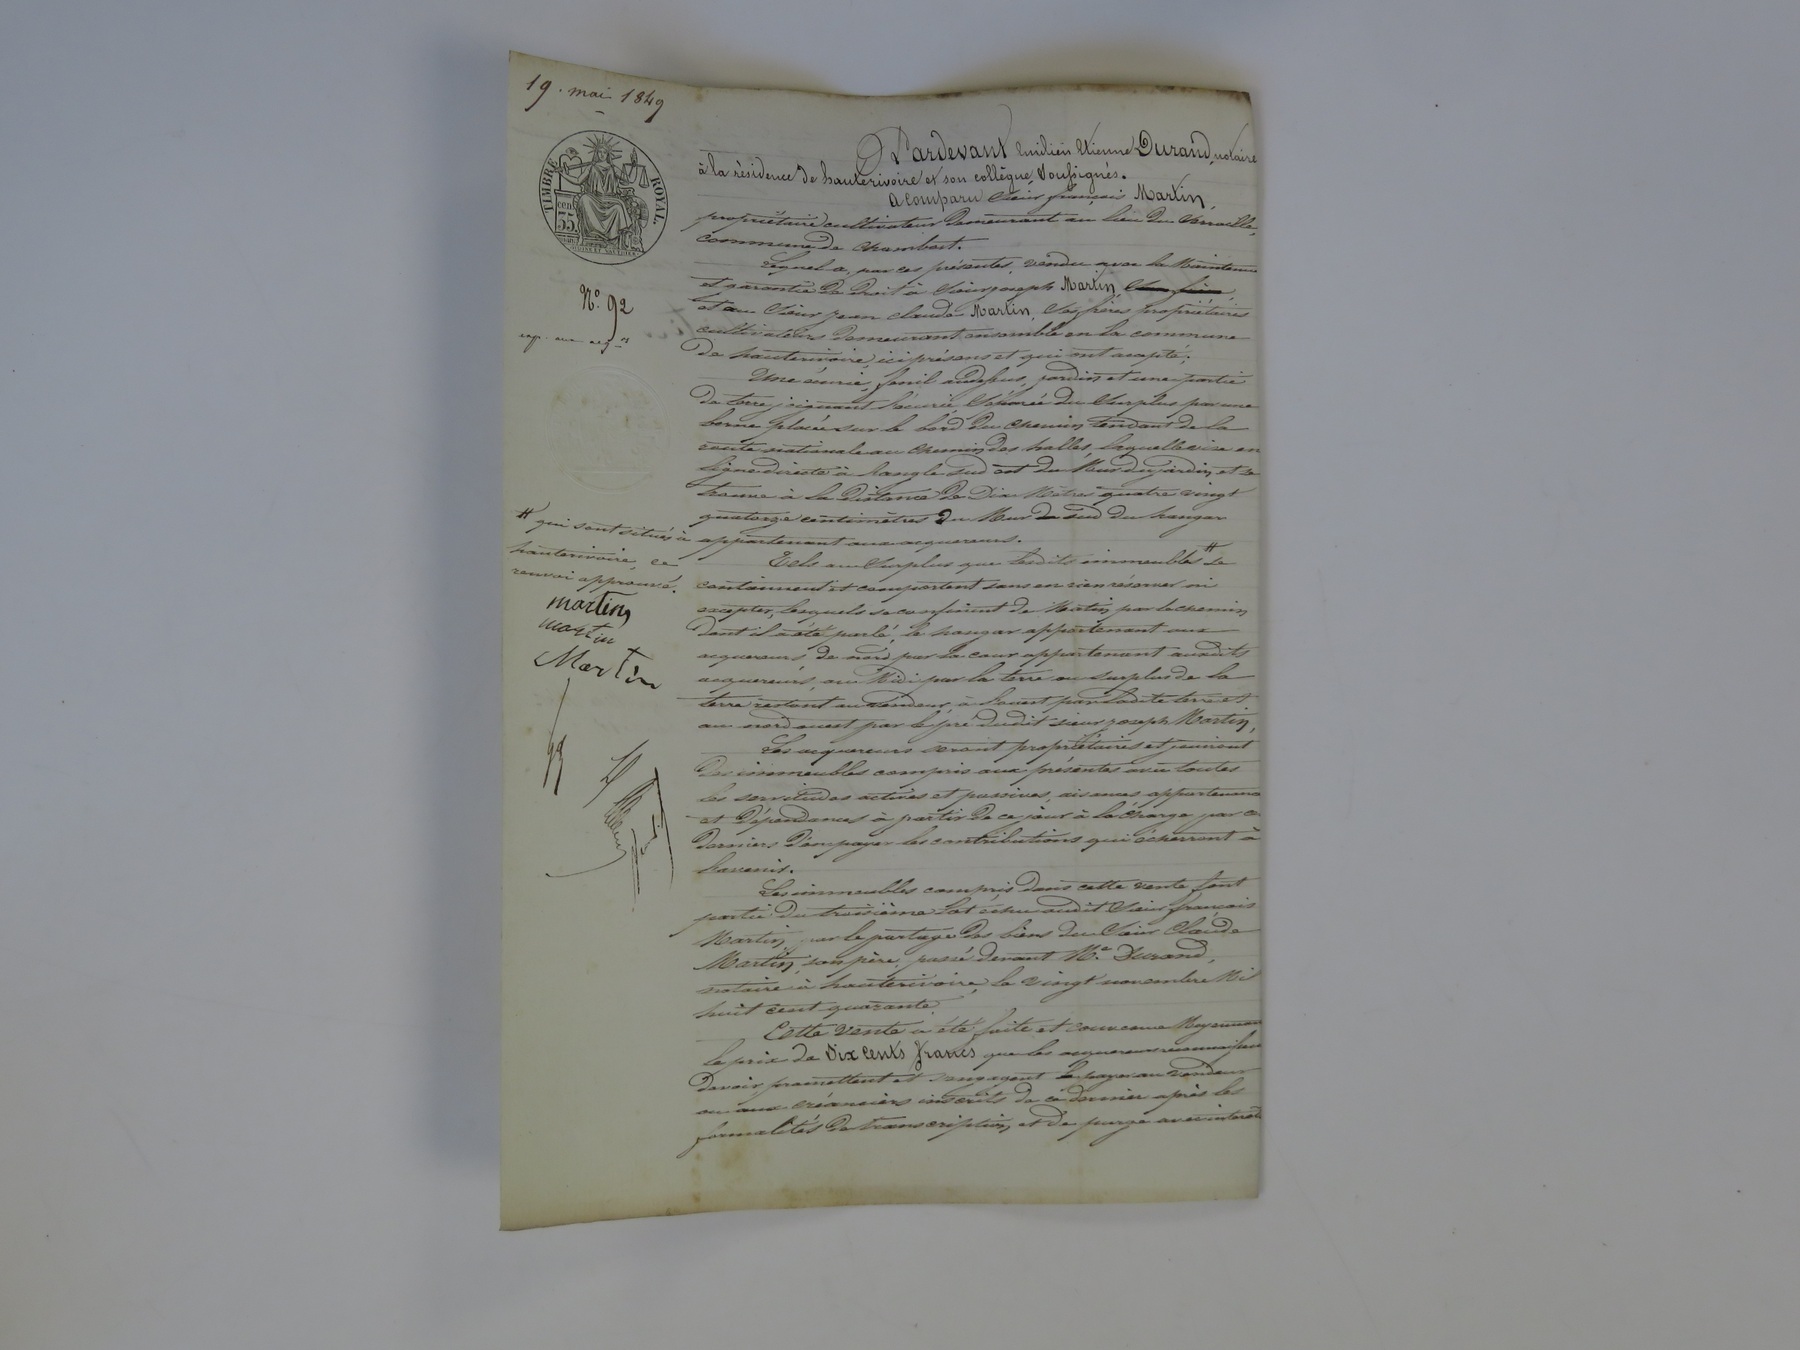 19. mai 1849
TIMBRE ROYAL.
cen
35
N.o 92
Pardevant Emilien Etienne Durand, notaire
à la résidence de hauterivoire et son collègue Soussignés.
a comparu Sieur françois Martin,
propriétaire cultivateur demeurant au lieu du
commune de Chambost.
Lequel a, par ces présentes, vendu avec la Maintenue
et garantie de droit à Sieur joseph Martin
et au Sieur jean claude Martin, Ses frères propriétaires
cultivateurs demeurant ensemble en la commune
de hauterivoire, ici présens et qui ont accepté;
Une écurie, fenil audessus, jardin et une partie
de terre joignant l'écurie Séparée du Surplus par une
borne placée sur le bord du chemin tendant de la
route nationale au chemin des halles, laquelle vise en
ligne directe à l'angle sud est du Mur du jardin et se
trouve à la distance de Dix Mètres quatre vingt
quatorze centimètres du Mur de sud du hangar
appartenant aux acquereurs.
Tels au Surplus que lesdits immeubles # se
contiennent et comportent sans en rien réserver ni
excepter, lesquels se confinent de Matin par le chemin
dont il a été parlé, le hangar appartenant aux
acquereurs, de nord par la cour appartenant auxdits
acquereurs, au Midi par la terre ou surplus de la
terre restant au vendeur, à l'ouest par ladite terre et
au nord ouest par le pré dudit sieur joseph Martin,
# qui sont situés à
hauterivoire, ce
renvoi approuvé.
martin
martin
Martin
Les acquereurs seront propriétaires et jouiront
des immeubles compris aux présentes avec toutes
les servitudes actives et passives, aisances appartenances
et dépendances à partir de ce jour à la charge par ces
derniers d'en payer les contributions qui écherront à
l'avenir.
Les immeubles compris dans cette vente font
partie du troisième lot échu audit Sieur françois
Martin, par le partage des biens du Sieur Claude
Martin, son père, passé devant M.e Durand,
notaire à hauterivoire, le vingt novembre Mil
huit cent quarante.
Cette vente a été faite et convenue Moyennant
le prix de Six Cents francs que les acquereurs reconnaissent
devoir, promettent et s'engagent le payer au vendeur
ou aux créanciers inscrits de ce dernier après les
formalités de transcription, et de purge avec intérêts